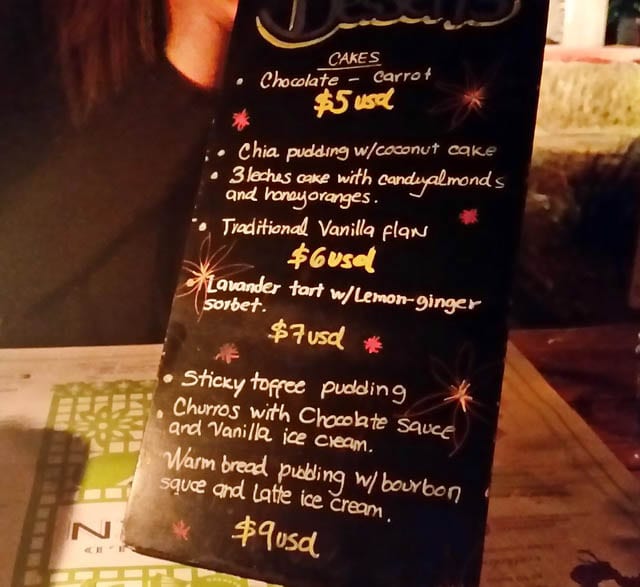 Desserts
CAKES
• Chocolate - carrot
$5 usd
• Chia pudding w/coconut cake
• 3 leches cake with candyalmonds
and honeyoranges.
• Traditional Vanilla flan
$6 usd
• Lavander tart w/Lemon-ginger
sorbet.
$7 usd
• Sticky toffee pudding
• Churros with Chocolate sauce
and Vanilla ice cream.
Warm bread pudding w/bourbon
sauce and Latte ice cream.
$9 usd